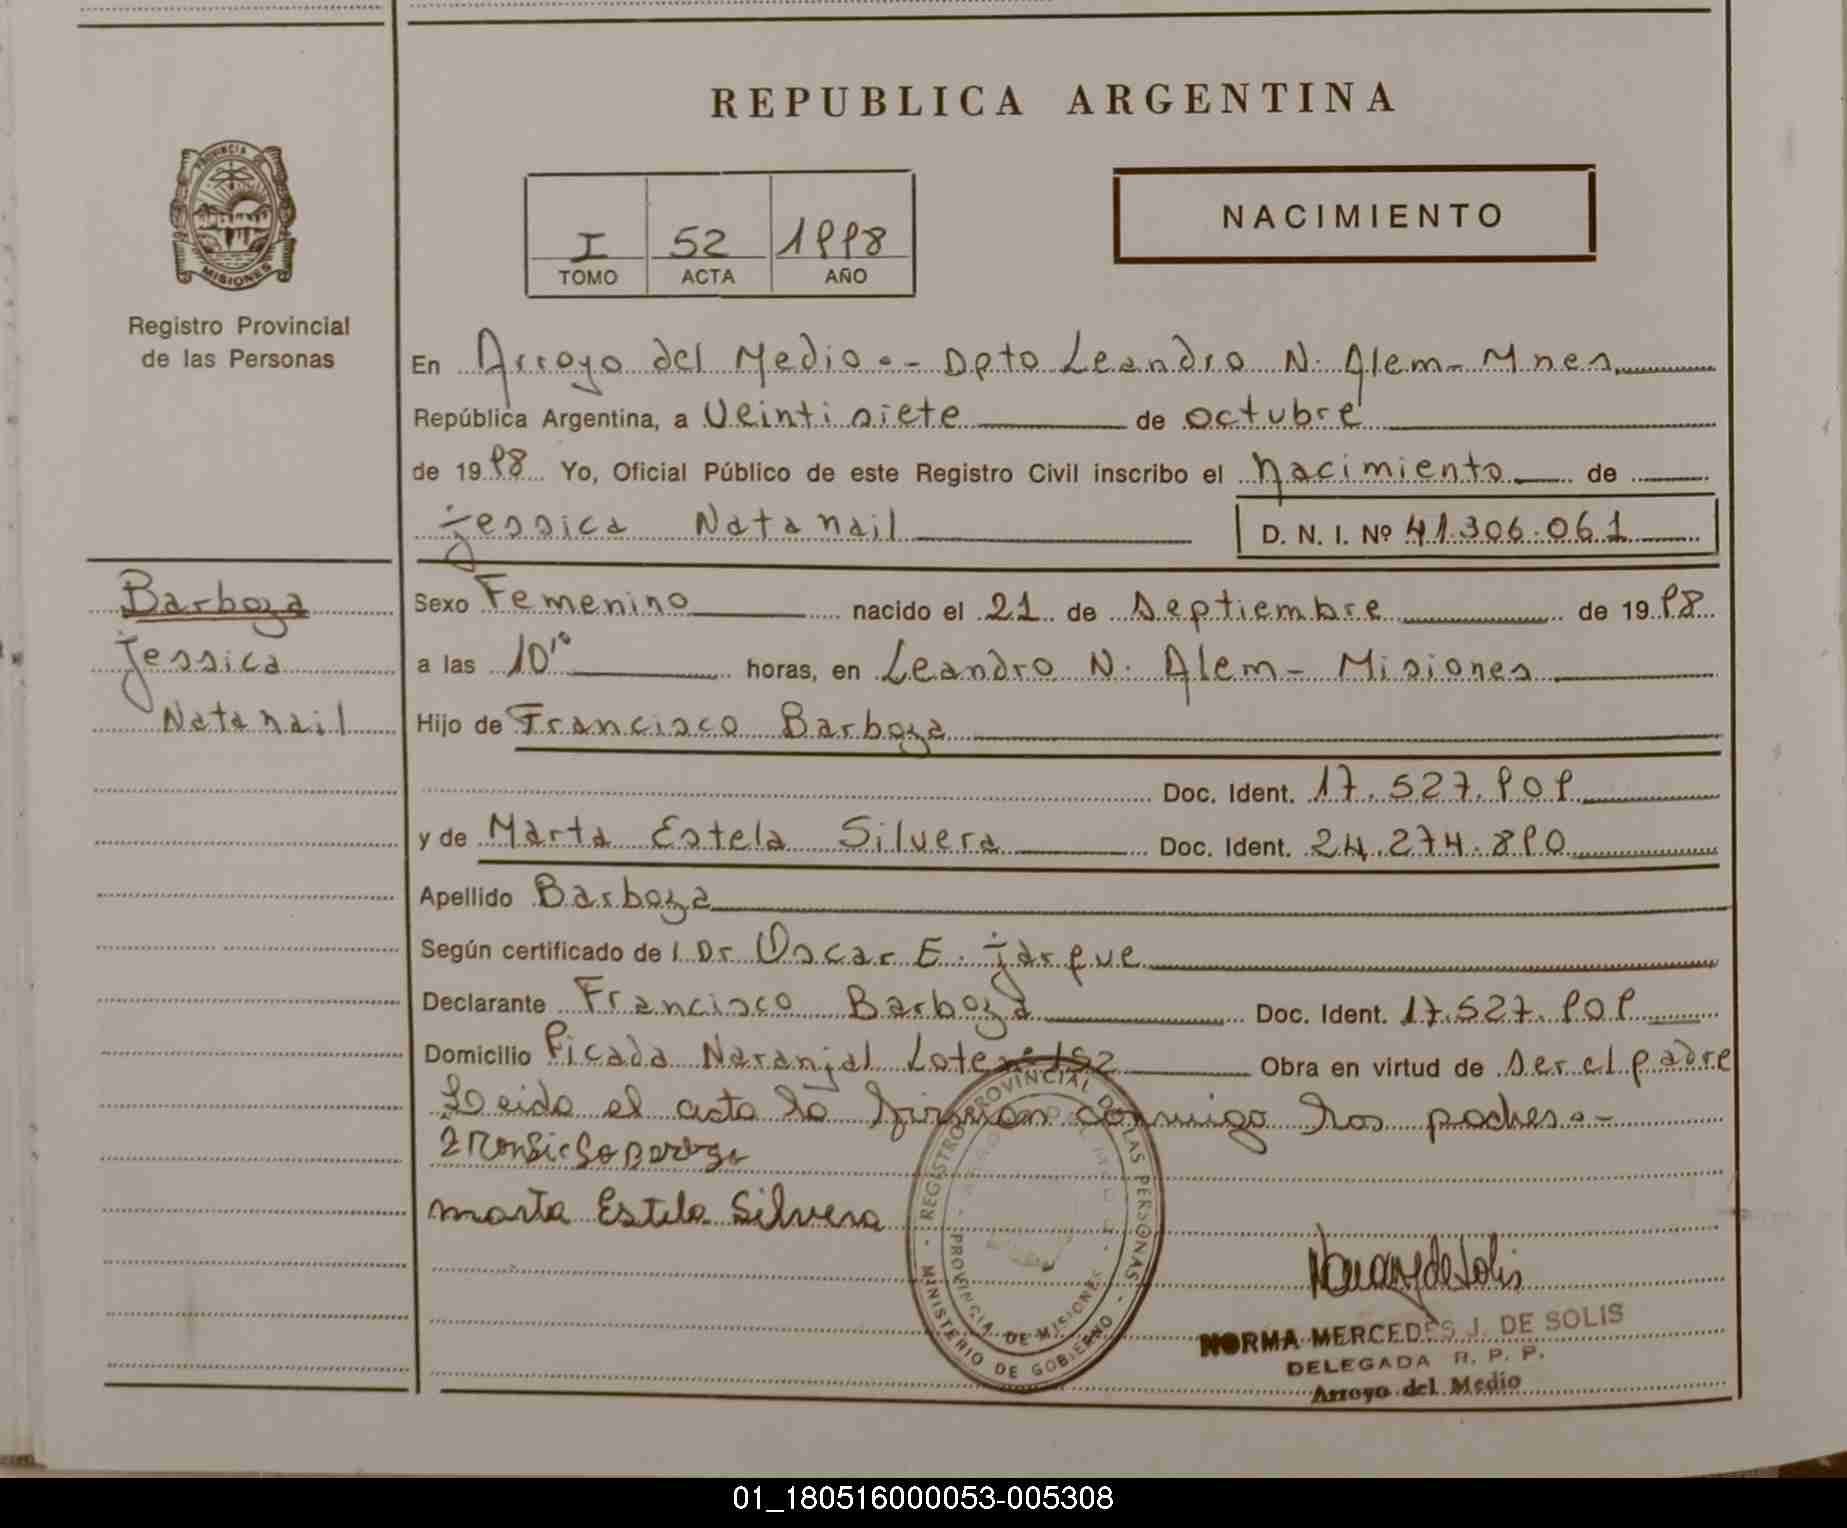 REPUBLICA ARGENTINA
PROVINCIA DE
MISIONES
Registro Provincial
de las Personas
I 52 1998
TOMO ACTA AÑO
NACIMIENTO
En Arroyo del Medio.- Dpto Leandro N. Alem- Mnes
República Argentina, a Veintisiete de octubre
de 1998 Yo, Oficial Público de este Registro Civil inscribo el Nacimiento de
Jessica Natanail D. N. I. Nº 41.306.061
Barboza
Jessica
Natanail
Sexo Femenino nacido el 21 de Septiembre de 1998
a las 10¹⁰ horas, en Leandro N. Alem- Misiones
Hijo de Francisco Barboza
Doc. Ident. 17.527.909
y de Marta Estela Silvera Doc. Ident. 24.274.890
Apellido Barboza
Según certificado de l Dr Oscar E. Jarque
Declarante Francisco Barboza Doc. Ident. 17.527.909
Domicilio Picada Naranjal Lote 152 Obra en virtud de ser el padre
Leido el acta la firman conmigo los padres.-
marta Estela Silvera
REGISTRO PROVINCIAL DE LAS PERSONAS
MINISTERIO DE GOBIERNO
PROVINCIA DE MISIONES
NORMA MERCEDES J. DE SOLIS
DELEGADA R. P. P.
Arroyo del Medio
01_180516000053-005308